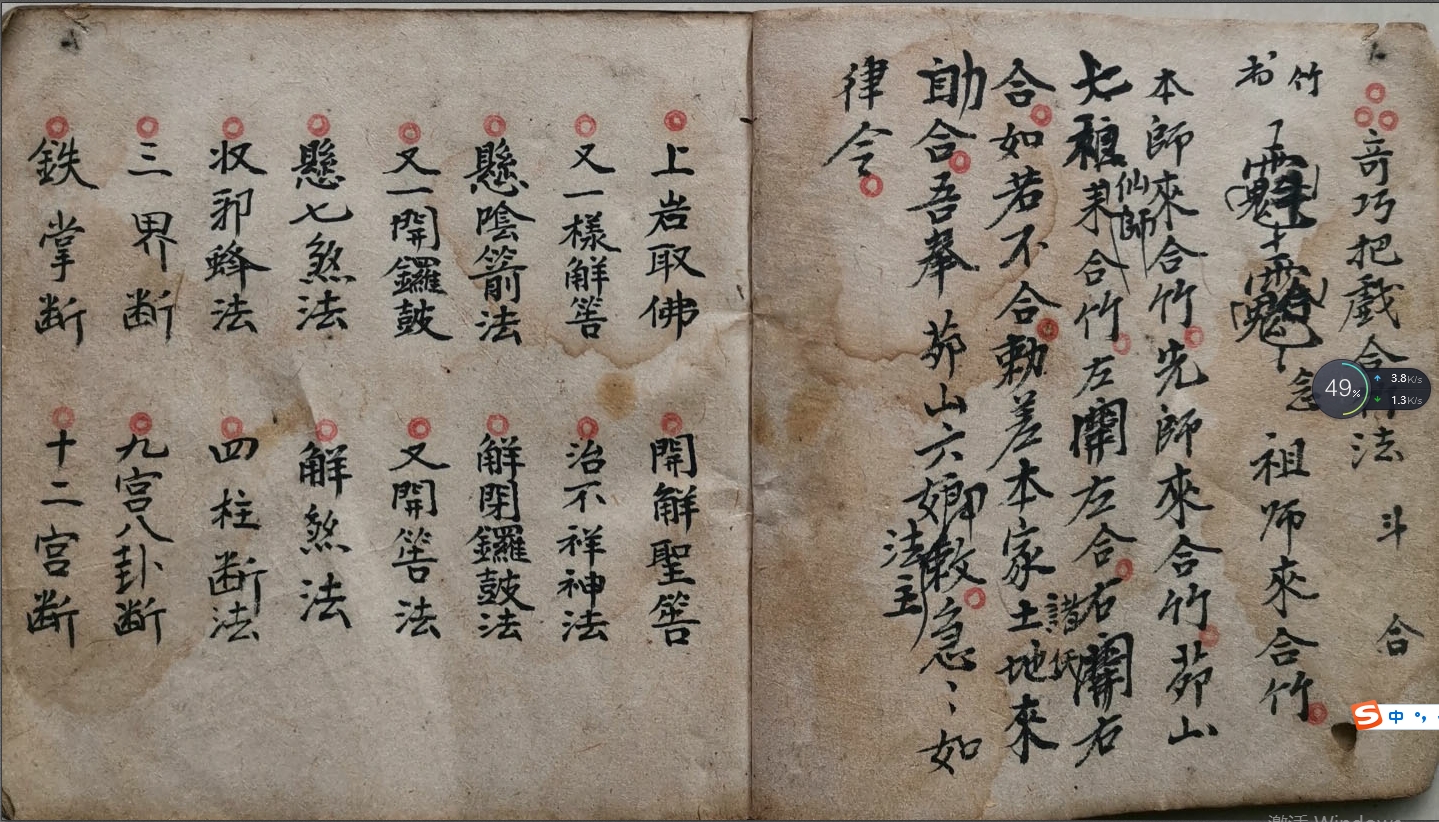 奇巧把戲合竹法
斗 合
竹
书
念
祖师來合竹
本師來合竹先師來合竹茆山
仙師
七 合竹左關左合右關右
諸
合如若不合勅差本家土地來
助合吾奉茆山六 敕急〻如
法主
律令
上岩取佛 開解聖筶
又一樣解筶 治不祥神法
懸陰箭法 解閉鑼鼓法
又一開鑼鼓 又開筶法
懸七煞法 解煞法
收邪蜂法 四柱断法
三界断 九宫八卦断
鉄掌断 十二宫断
49%
3.8K/s
1.3K/s
中
激活 Windows